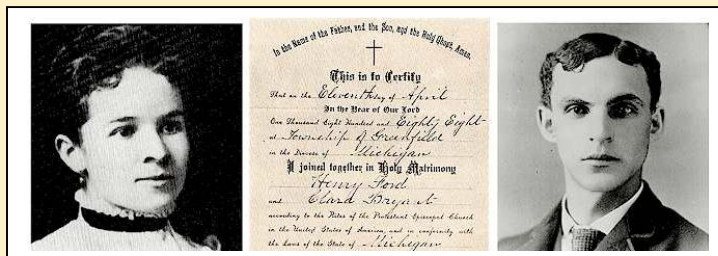 In the Name of the Father, and the Son, and the Holy Ghost, Amen.
This is to Certify
That on the Eleventh day of April
In the Year of Our Lord
One Thousand Eight Hundred and Eighty Eight
at Township of Greenfield
in the Diocese of Michigan
I joined together in Holy Matrimony
Henry Ford
and Clara Bryant
according to the Rites of the Protestant Episcopal Church
in the United States of America, and in conformity with
the Laws of the State of Michigan